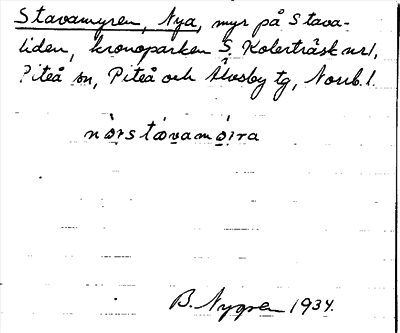 Stavamyren, Nya, myr på Stava-
liden, kronoparken S. Kolerträsk nr 1,
Piteå sn, Piteå och Älvsby tg, Norrb. l.
B. Nygren 1934.